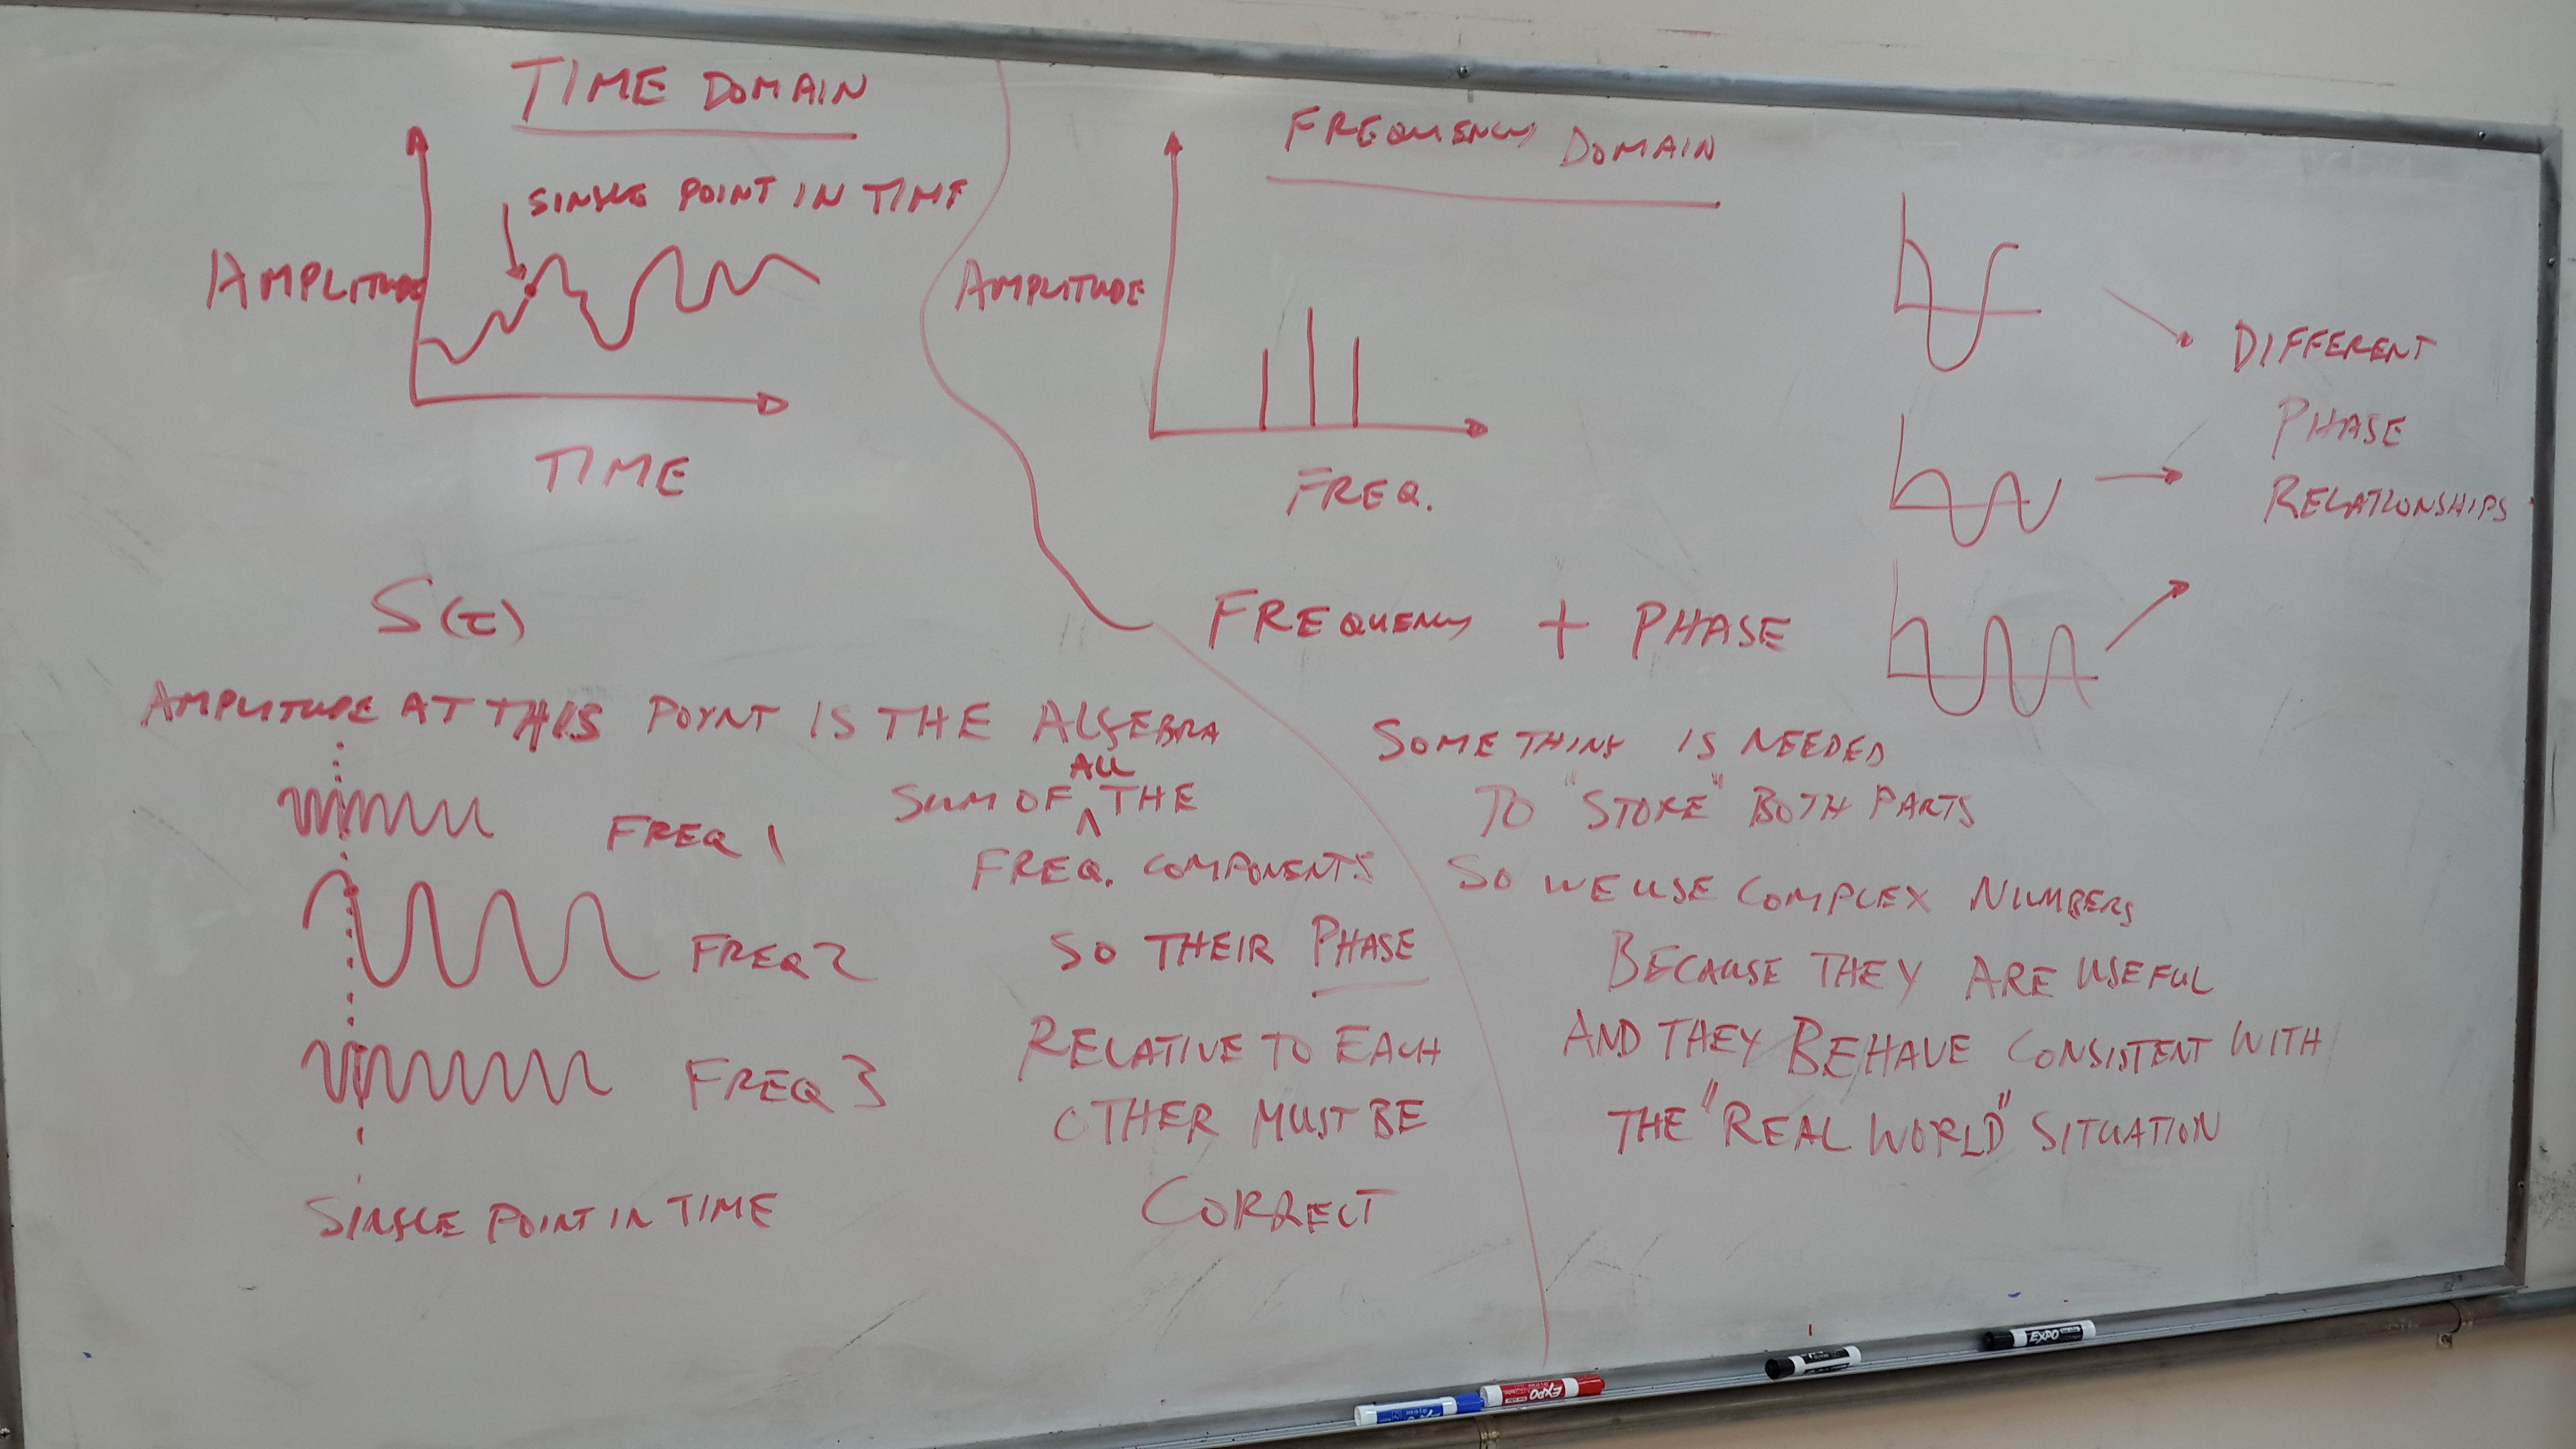 TIME DOMAIN
SINGLE POINT IN TIME
AMPLITUDE
TIME
S(t)
AMPLITUDE AT THIS POINT IS THE ALGEBRA
ALL
SUM OF ^ THE
FREQ 1
FREQ. COMPONENTS
FREQ 2
SO THEIR PHASE
RELATIVE TO EACH
FREQ 3
OTHER MUST BE
CORRECT
SINGLE POINT IN TIME
FREQUENCY DOMAIN
AMPLITUDE
FREQ.
DIFFERENT
PHASE
RELATIONSHIPS
FREQUENCY + PHASE
SOMETHING IS NEEDED
TO "STORE" BOTH PARTS
SO WE USE COMPLEX NUMBERS
BECAUSE THEY ARE USEFUL
AND THEY BEHAVE CONSISTENT WITH
THE "REAL WORLD" SITUATION
EXPO
EXPO